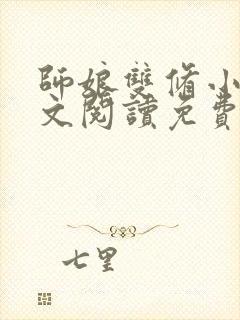 師娘雙脩小
文閱讀免費
七里